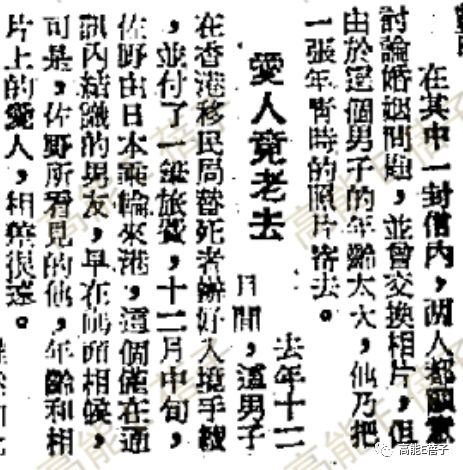 在其中一封信內，兩人都願意
討論婚姻問題，並曾交換相片，但
由於這個男子的年齡太大，他乃把
一張年靑時的照片寄去。
愛人竟老去
去年十二
月間，這男子
在香港移民局替死者辦好入境手續
，並付了一旅費，十二月中旬，
佐野由日本乘輪來港，這個僅在通
訊內結識的男友，早在碼頭相候，
可是，佐野所看見的他，年齡和相
片上的愛人，相差很遠。
高能E蓓子